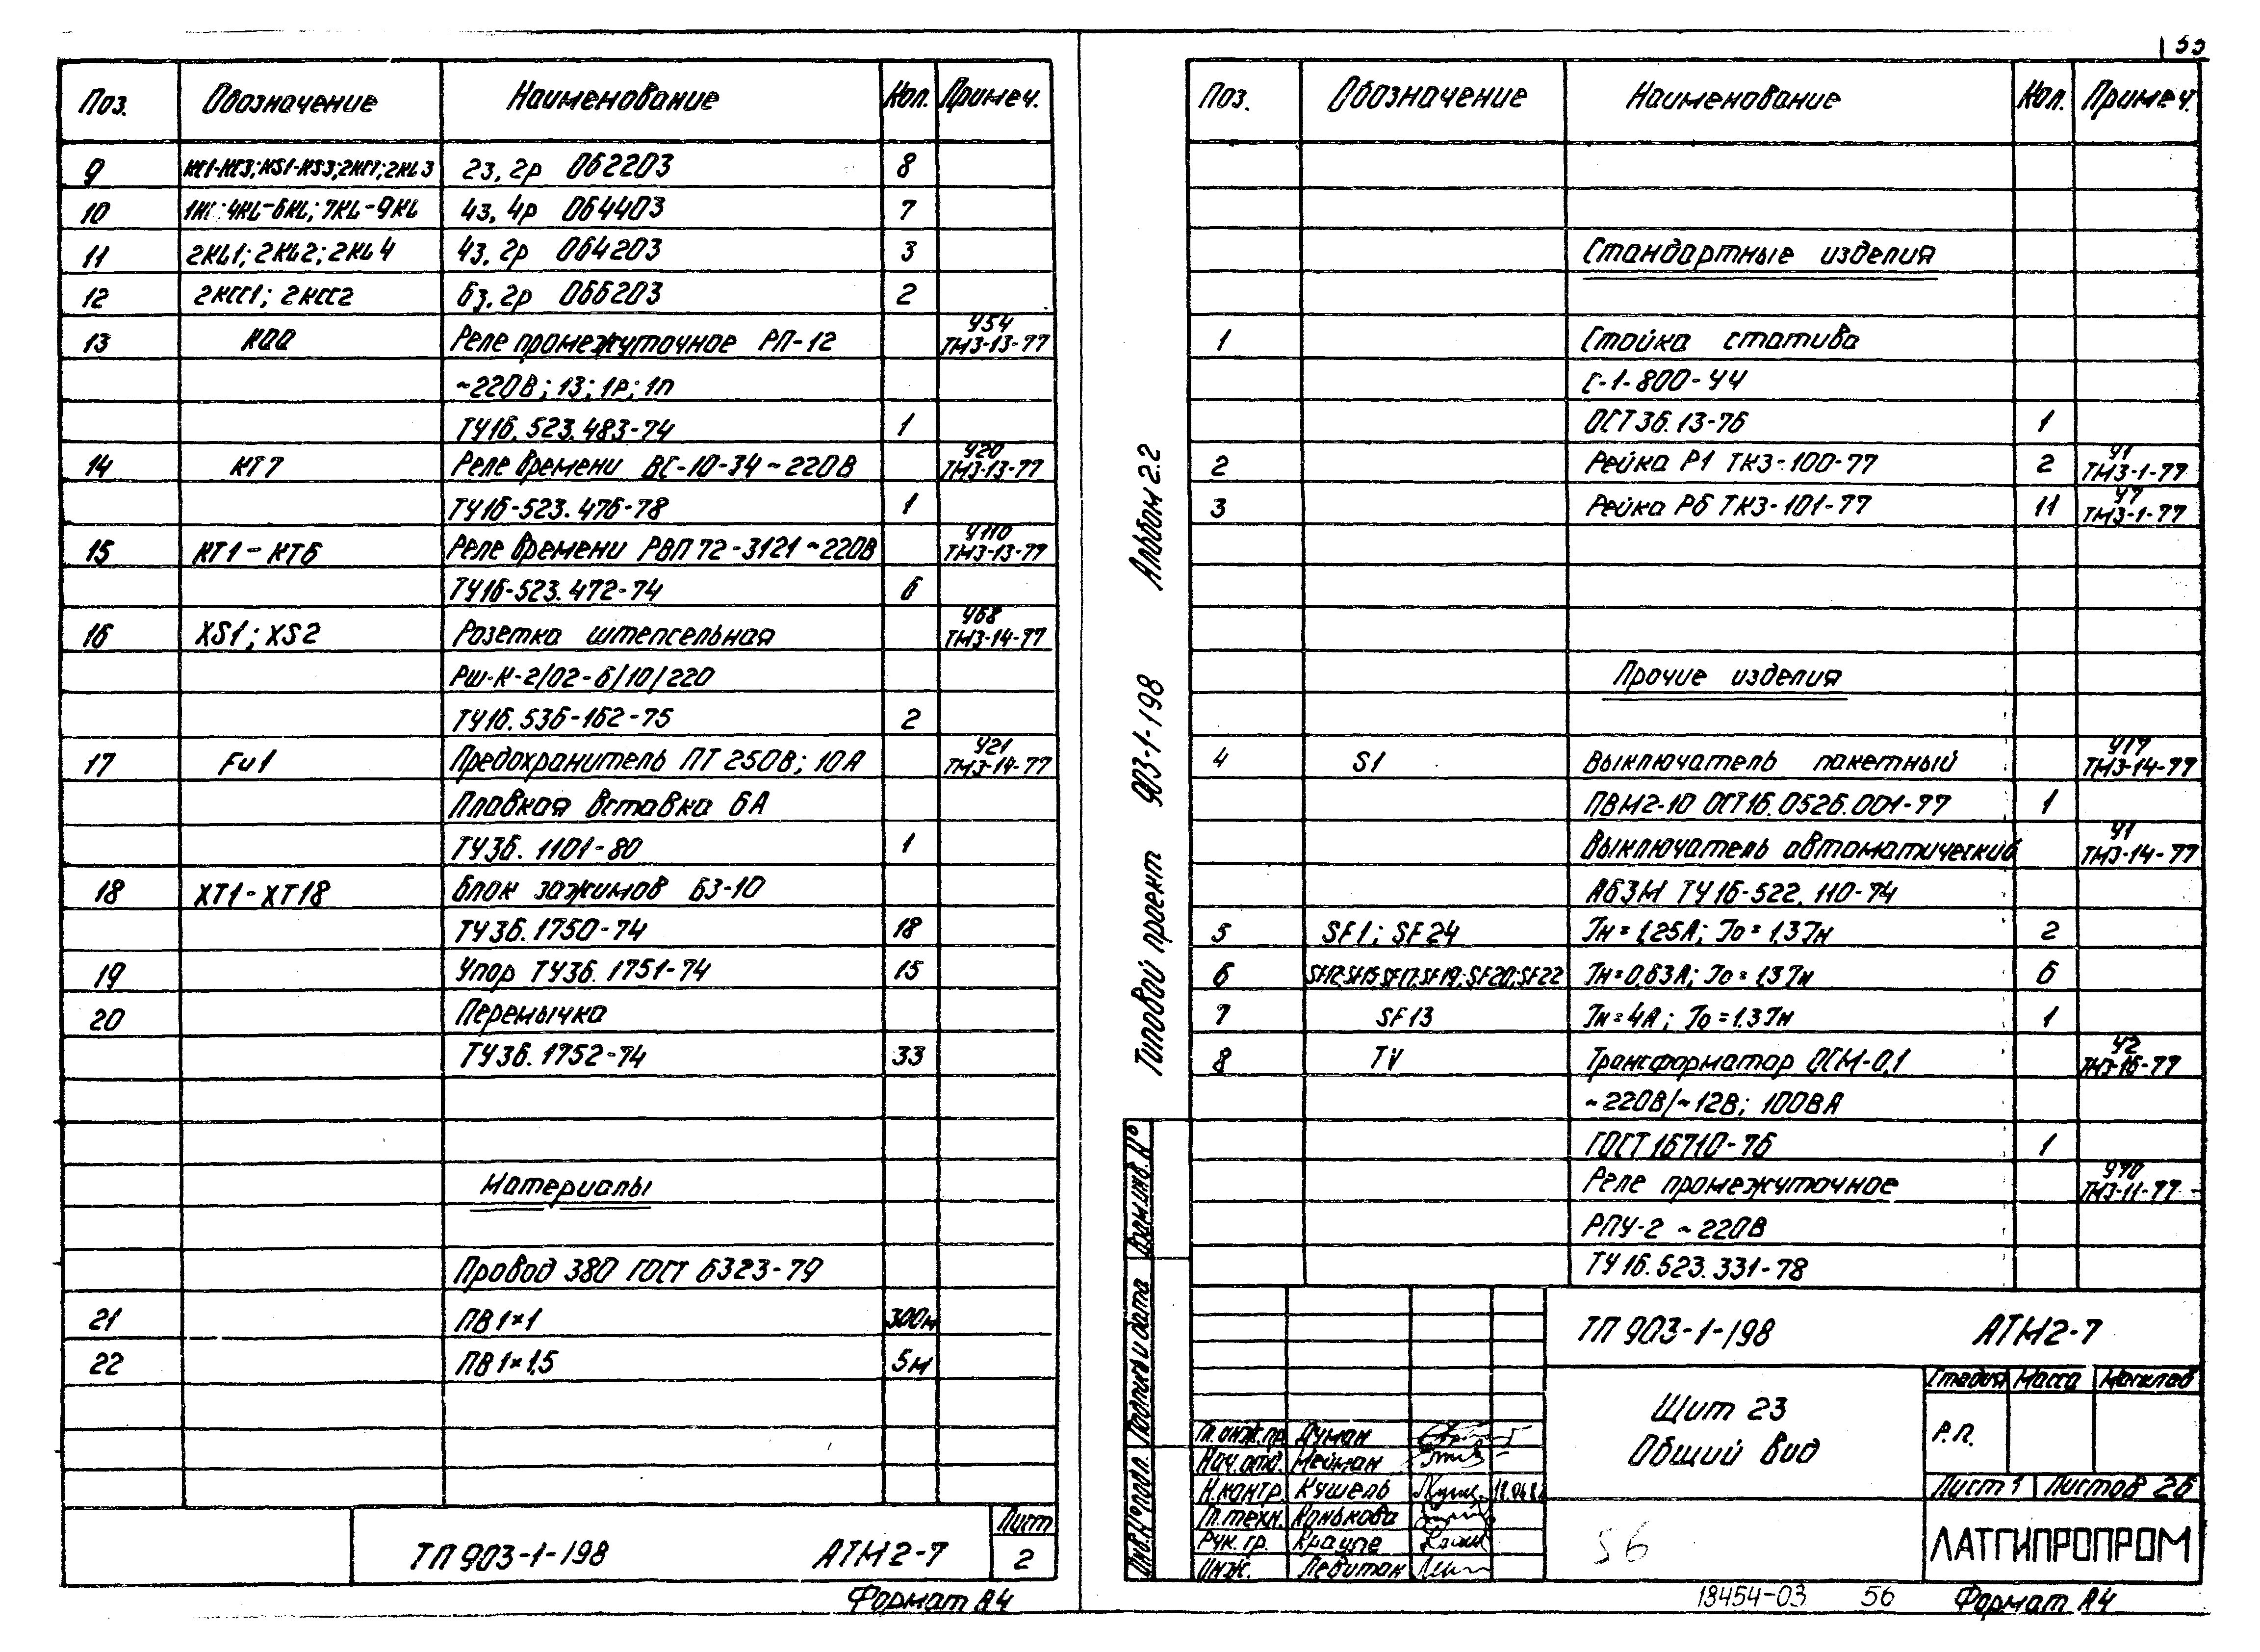 Поз. Обозначение Наименование Кол. Примеч.
9 КС1-КС3; КS1-КS3; 2КС7; 2KL3 2з, 2р 062203 8
10 4KL-6KL; 7KL-9KL 4з, 4р 064403 7
11 2KL1; 2KL2; 2KL4 4з, 2р 064203 3
12 2КСС1; 2КСС2 6з, 2р 066203 2
13 КQQ Реле промежуточное РП-12 У54 ТМ3-13-77
~220В; 1З; 1Р; 1П
ТУ16.523.483-74 1
14 КТ7 Реле времени ВС-10-34 ~220В У20 ТМ3-13-77
ТУ16-523.476-78 1
15 КТ1-КТ6 Реле времени РВП72-3121 ~220В У110 ТМ3-13-77
ТУ16-523.472-74 6
16 XS1; XS2 Розетка штепсельная У68 ТМ3-14-77
РШ-К-2/02-6/10/220
ТУ16.536-162-75 2
17 Fu1 Предохранитель ПТ 250В; 10А У21 ТМ3-14-77
Плавкая вставка 6А
ТУ36.1101-80 1
18 ХТ1-ХТ18 Блок зажимов БЗ-10
ТУ36.1750-74 18
19 Упор ТУ36.1751-74 15
20 Перемычка
ТУ36.1752-74 33
Материалы
Провод 380 ГОСТ 6323-79
21 ПВ 1×1 300м
22 ПВ 1×1,5 5м
ТП 903-1-198 АТМ2-7 Лист 2
Формат А4
Поз. Обозначение Наименование Кол. Примеч.
Стандартные изделия
1 Стойка статива
С-1-800-У4
ОСТ36.13-76 1
2 Рейка Р1 ТК3-100-77 2 У1 ТМ3-1-77
3 Рейка Р6 ТК3-101-77 11 У7 ТМ3-1-77
Прочие изделия
4 S1 Выключатель пакетный У17 ТМ3-14-77
ПВМ2-10 ОСТ16.0526.001-77 1
Выключатель автоматический У1 ТМ3-14-77
А63М ТУ16-522.110-74
5 SF1; SF24 Iн=1,25А; Iо=1,3Iн 2
6 SF12; SF15; SF17; SF19; SF20; SF22 Iн=0,63А; Iо=1,3Iн 6
7 SF13 Iн=4А; Iо=1,3Iн 1
8 TV Трансформатор ОСМ-0,1 У2 ТМ3-16-77
~220В/~12В; 100ВА
ГОСТ 16710-76 1
Реле промежуточное У90 ТМ3-11-77
РПУ-2 ~220В
ТУ16.523.331-78
Альбом 2.2
Типовой проект 903-1-198
Взам.инв.N°
Подпись и дата
Инв.N°подл.
ТП 903-1-198 АТМ2-7
Щит 23
Общий вид
Стадия Масса Масштаб
Р.П.
Лист 1 Листов 26
ЛАТГИПРОПРОМ
Гл.инж.пр. Думан
Нач.отд. Мейман
Н.контр. Кушель
Гл.техн. Конькова
Рук.гр. Крауле
Инж. Левитан
56
18454-03 56
Формат А4